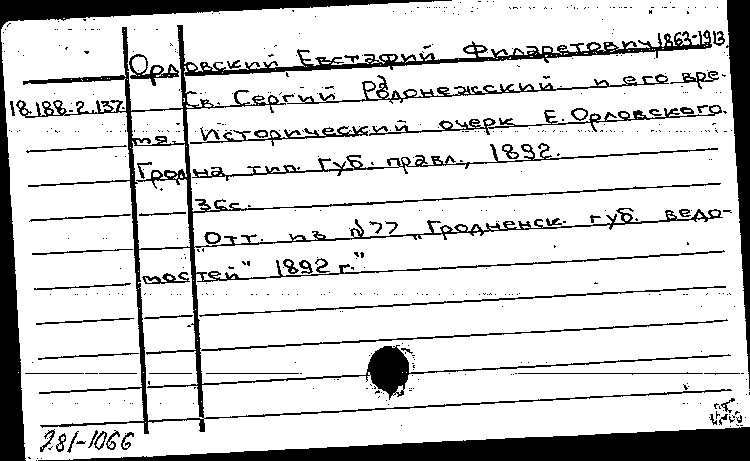 Орловский, Евстафий Филаретович, 1863-1913
18.188.2.137. Св. Сергий Радонежский и его вре-
мя. Исторический очерк Е. Орловского.
Гродна, тип. Губ. правл., 1892.
36с.
"Отт. из №77 „Гродненск. губ. ведо-
мостей" 1892 г."
281-1066